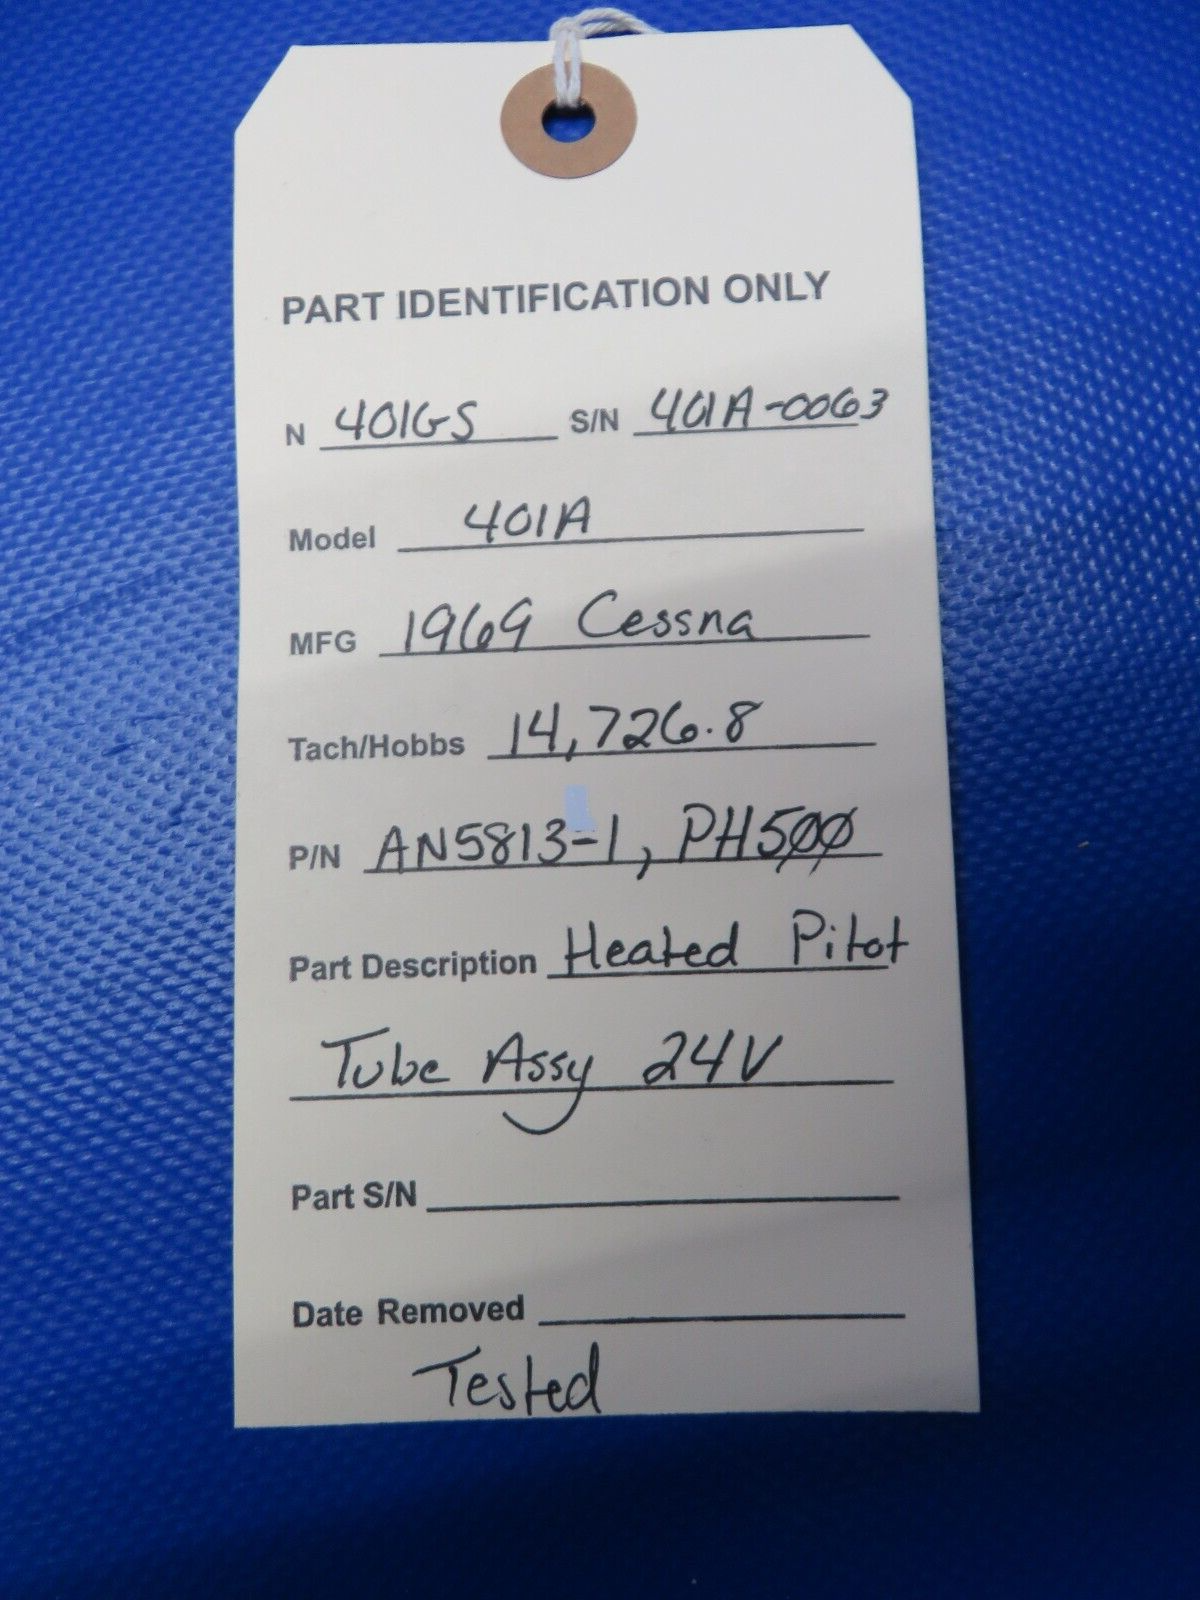 PART IDENTIFICATION ONLY
N 401GS S/N 401A-0063
Model 401A
MFG 1969 Cessna
Tach/Hobbs 14,726.8
P/N AN5813-1, PH500
Part Description Heated Pitot
Tube Assy 24V
Part S/N
Date Removed
Tested